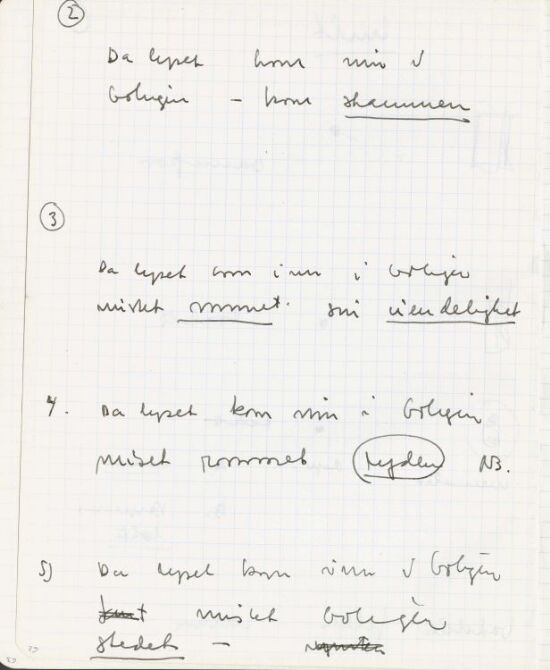 2
Da lyset kom inn i
boligen – kom skammen
3
Da lyset kom inn i boligen
mistet rommet. sin uendelighet
4. Da lyset kom inn i boligen
mistet rommet NB.
5) Da lyset kom inn i boligen
mistet boligen
stedet –